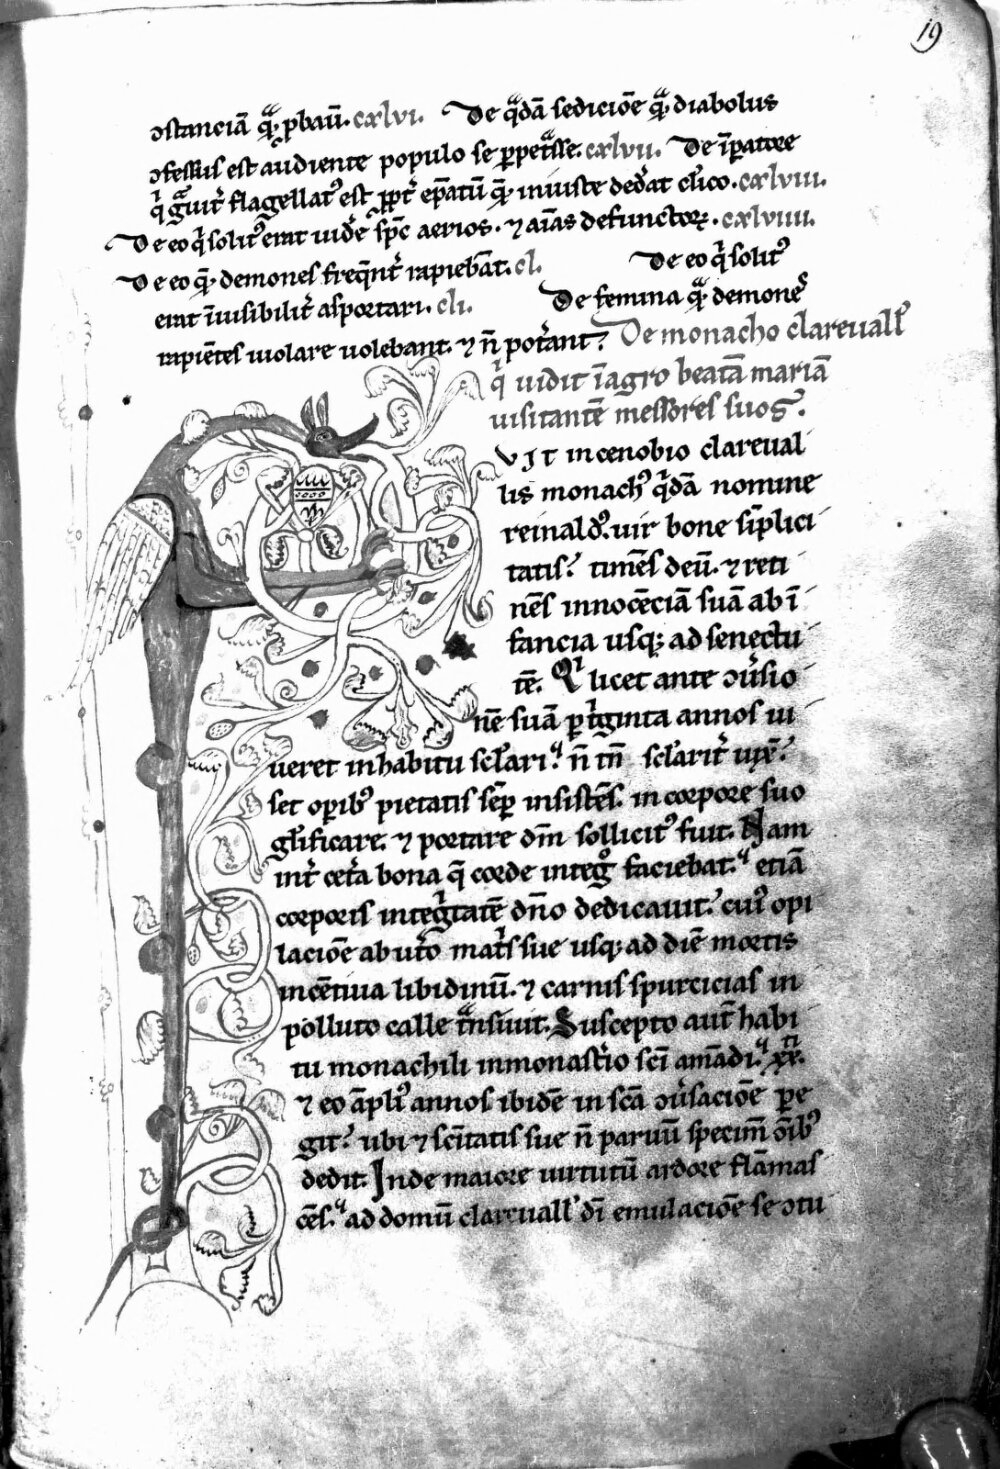 19
ↄstanciā q̄ ꝓbaū. cxlvi. De q̄dā sediciōe q̄ diabolus
ↄfessus est audiente populo se ꝑpetᵃsse. cxlvii. De īꝑatore
qͥ gᵃuit̓ flagellatꝰ est ꝓpt̓ ep̄atū q̄ iniuste ded̓at cl̓ico. cxlviii.
De eo qͥ solitꝰ erat uid̓e sp̄c aerios. ⁊ aīas defunctoꝝ. cxlviiii.
De eo q̄ demones freq̄nt̓ rapiebāt. cl. De eo qͥ solitꝰ
erat īuisibilit̓ asportari. cli. De femina q̄ demones
rapiētes uiolare uolebant. ⁊ n̄ pot̓ant. De monacho clareuall̓
qͥ uidit ī agro beatā mariā
uisitantē messores suos.
VIT in cenobio clareual
lis monachꝰ qͥdā nomine
reinaldꝰ. uir bone sīplici
tatis. timēs deū. ⁊ reti
nēs innocēciā suā ab ī
fancia usq; ad senectu
tē. Qͥ licet ante ↄu̓sio
nē suā ꝑ tͥginta annos ui
ueret in habitu scl̓ari. n̄ tn̄ scl̓arit̓ uix̄.
set oꝑibꝰ pietatis sēꝑ insistēs. in corpore suo
gl̓ificare. ⁊ portare dm̄ sollicitꝰ fuit. Nam
int̓ cet̓a bona q̄ corde integͦ faciebat. etiā
corporis integͥtatē dn̄o dedicauit. cuiꝰ opi
laciōe ab ut̓o matͥs sue usq; ad diē mortis
incētiua libidinū. ⁊ carnis spurcicias in
polluto calle tᵃnsiuit. Suscepto aut̄ habi
tu monachili in monast̓io sc̄i amādi. xx̄.
⁊ eo āpliꝰ annos ibidē in sc̄a ↄu̓saciōe ꝑe
git. ubi ⁊ sc̄itatis sue n̄ paruū specim̄ oībꝰ
dedit. Inde maiore uirtutū ardore flāmas
cēs. ad domū clareuall̓ dī emulaciōe se ↄtu